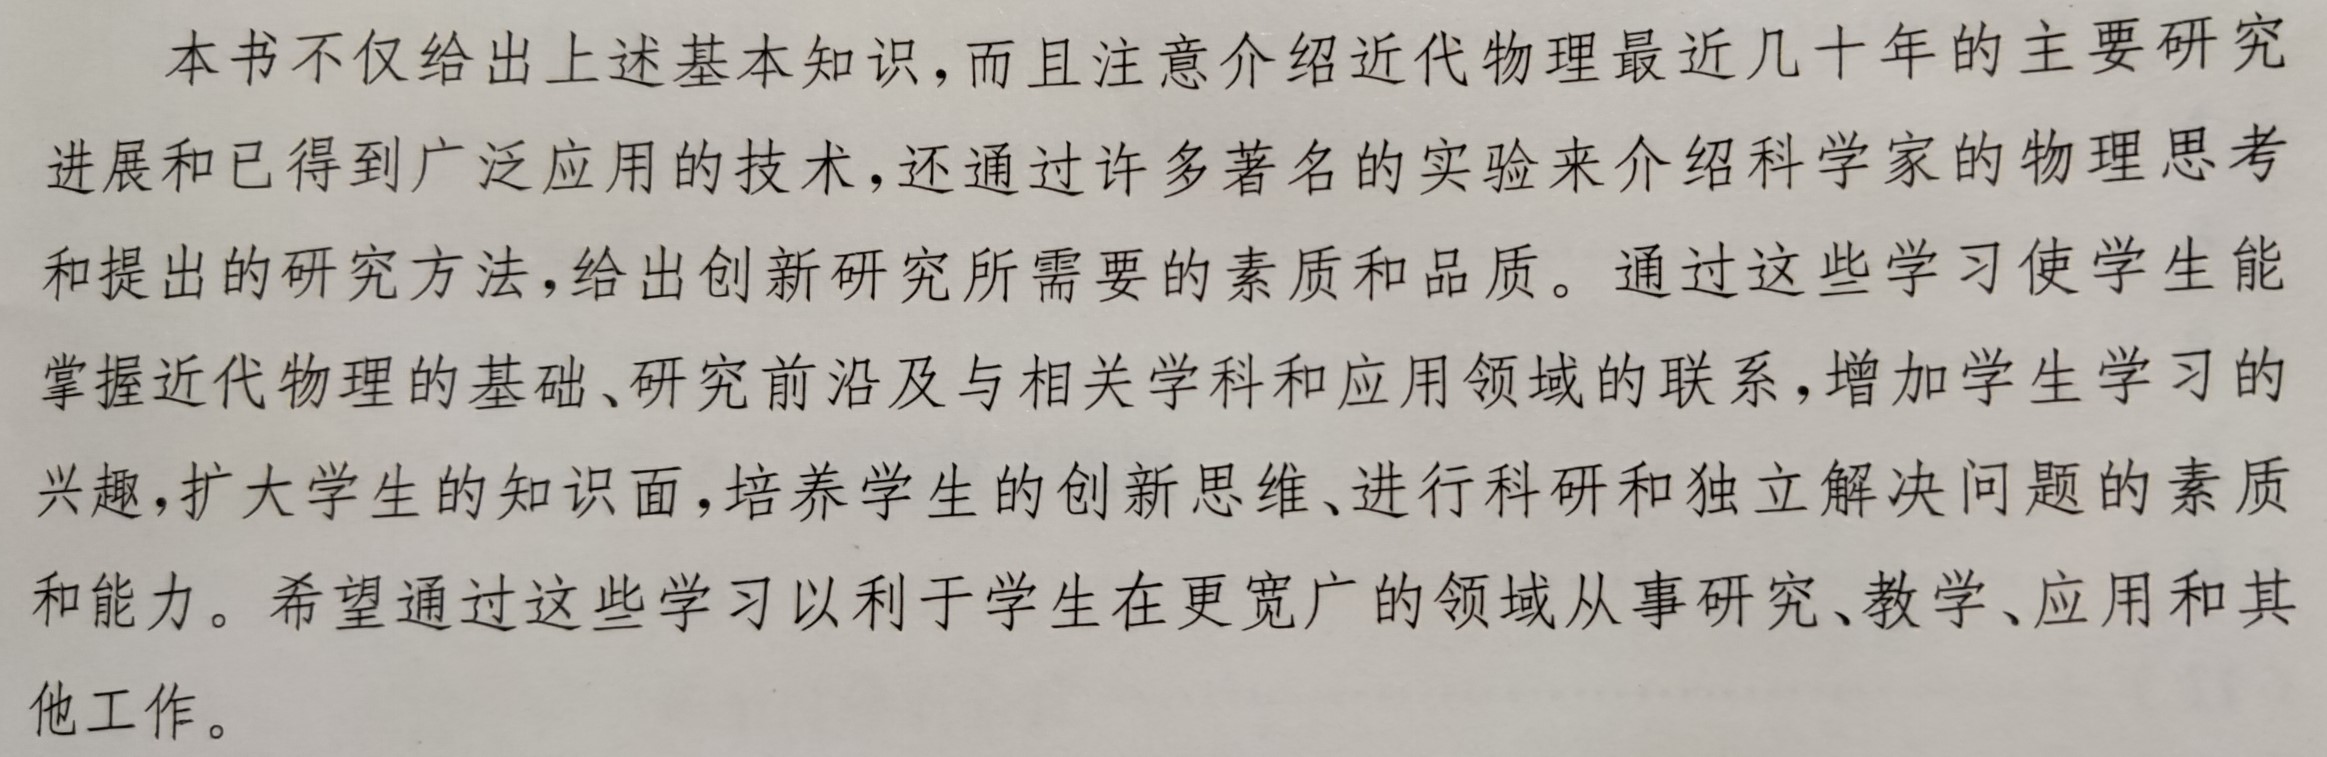 本书不仅给出上述基本知识,而且注意介绍近代物理最近几十年的主要研究
进展和已得到广泛应用的技术,还通过许多著名的实验来介绍科学家的物理思考
和提出的研究方法,给出创新研究所需要的素质和品质。通过这些学习使学生能
掌握近代物理的基础、研究前沿及与相关学科和应用领域的联系,增加学生学习的
兴趣,扩大学生的知识面,培养学生的创新思维、进行科研和独立解决问题的素质
和能力。希望通过这些学习以利于学生在更宽广的领域从事研究、教学、应用和其
他工作。